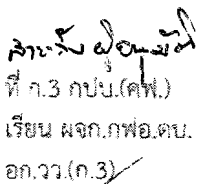 ที่ ก.3 กปบ.(คฟ.)
เรียน ผจก.กฟอ.ดบ.
อก.วว.(ก.3)